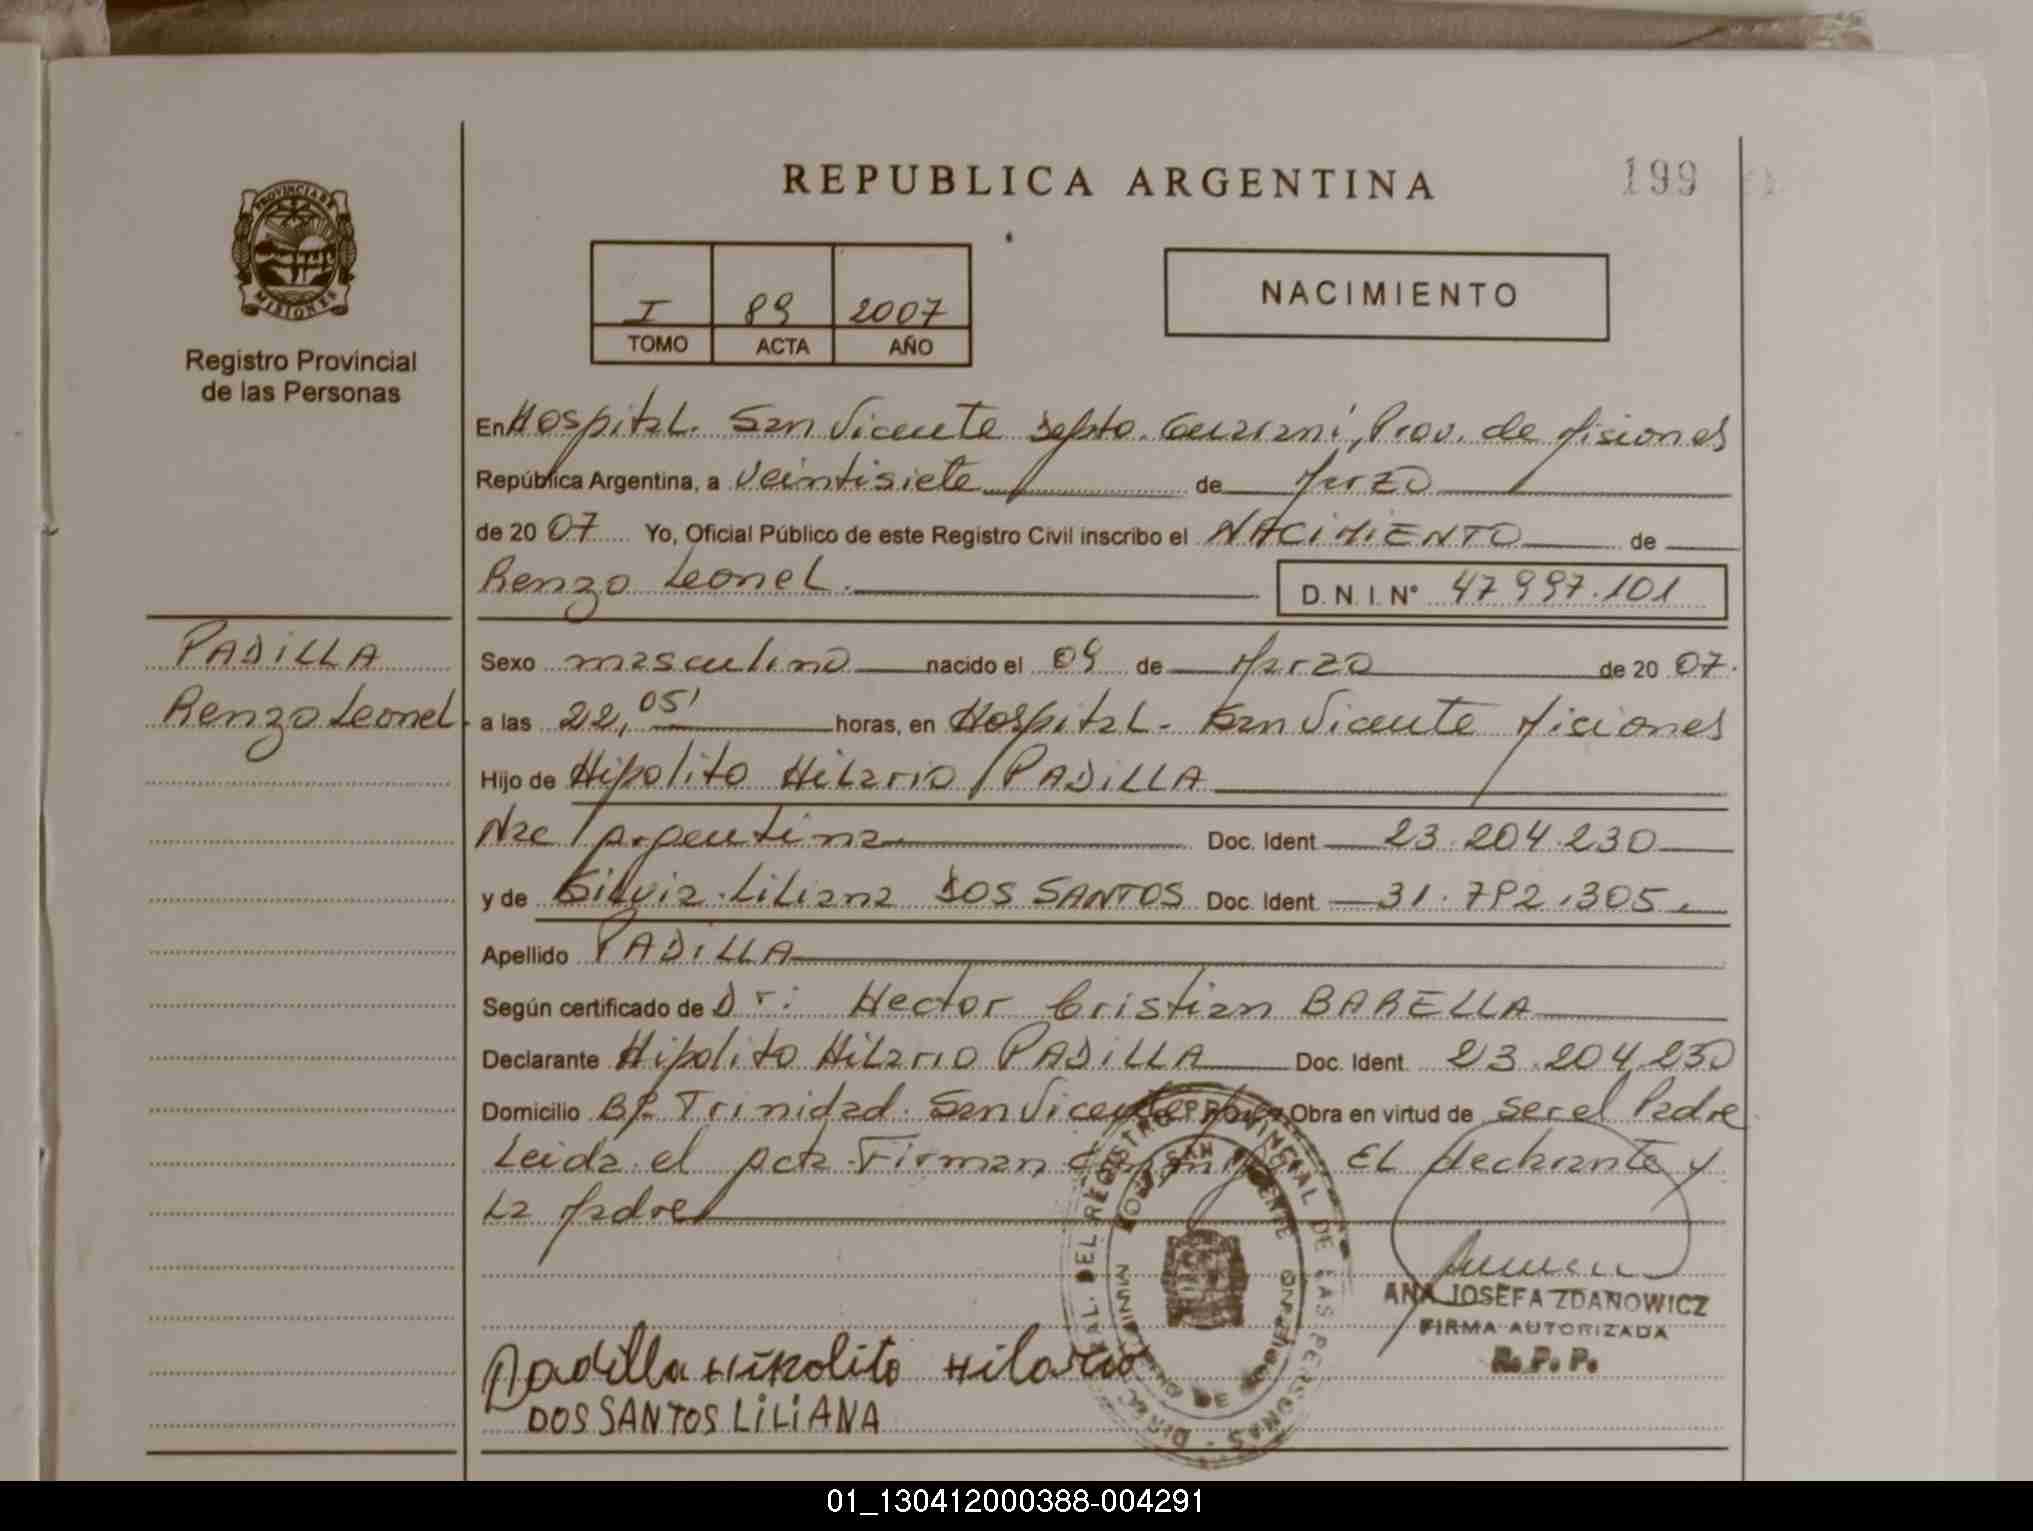 REPUBLICA ARGENTINA
199
PROVINCIA DE
MISIONES
Registro Provincial
de las Personas
I 89 2007
TOMO ACTA AÑO
NACIMIENTO
En Hospital. San Vicente Depto. Guaraní, Prov. de Misiones
República Argentina, a veintisiete de Marzo
de 20 07 Yo, Oficial Público de este Registro Civil inscribo el NACIMIENTO de
Renzo Leonel. D.N.I.N° 47 997.101
PADILLA
Renzo Leonel
Sexo masculino nacido el 09 de Marzo de 20 07.
a las 22,05' horas, en Hospital - San Vicente Misiones
Hijo de Hipolito Hilario PADILLA
Nac Argentina Doc. Ident 23.204.230
y de Silvia Liliana DOS SANTOS Doc. Ident 31.792.305
Apellido PADILLA
Según certificado de Dr: Hector Cristian BARELLA
Declarante Hipolito Hilario PADILLA Doc. Ident. 23.204.230
Domicilio Bº Trinidad. San Vicente Obra en virtud de ser el Padre
Leida el Acta Firman EL declarante y
La Madre
ANA JOSEFA ZDANOWICZ
FIRMA AUTORIZADA
R. P. P.
Padilla Hipolito Hilario
DOS SANTOS LiLiANA
01_130412000388-004291